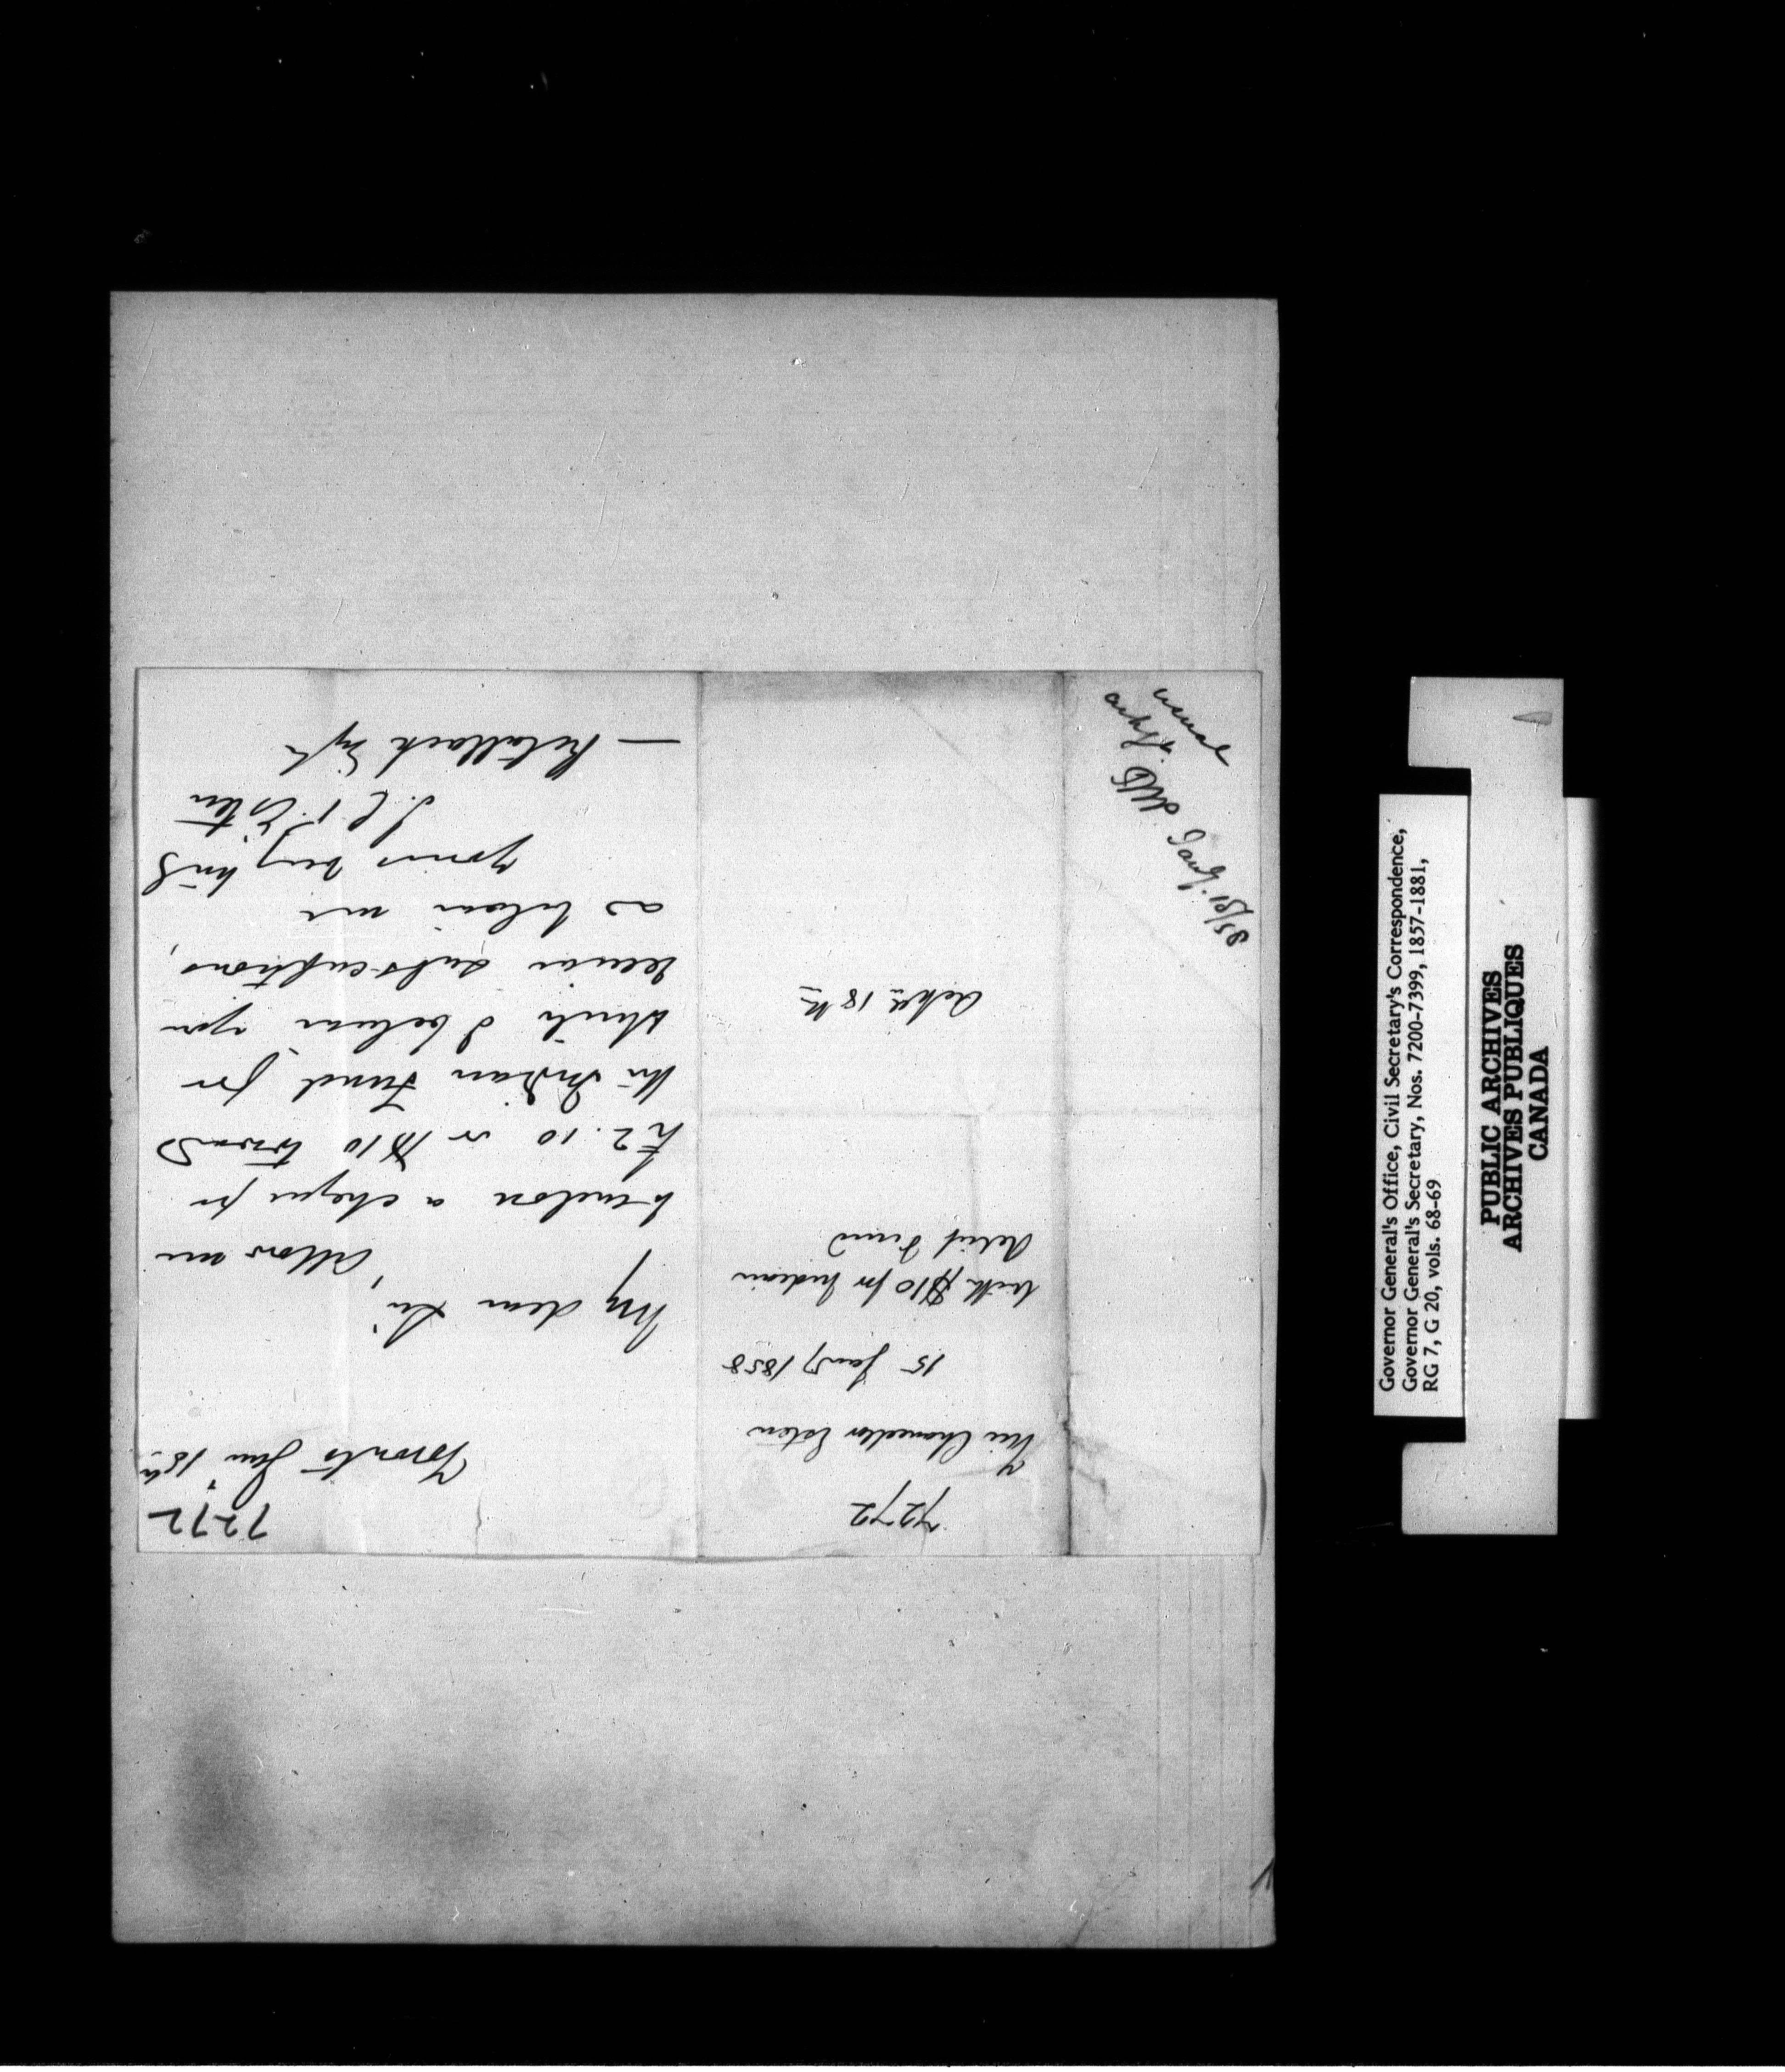 7272
Toronto Jan 15th
My dear Sir,
Allow me
to enclose a cheque for
£2.10 or $10 toward
the Indian Fund for
which I believe you
receive subscriptions,
as believe me
yours very truly
J. C. P. Esten
— Retallack Esqre
7272
Vice Chancellor Esten
15 Jany 1858
with $10 for Indian
Relief Fund
Ackd 18th
usual
18/58
Governor General's Office, Civil Secretary's Correspondence,
Governor General's Secretary, Nos. 7200-7399, 1857-1881,
RG 7, G 20, vols. 68-69
PUBLIC ARCHIVES
ARCHIVES PUBLIQUES
CANADA